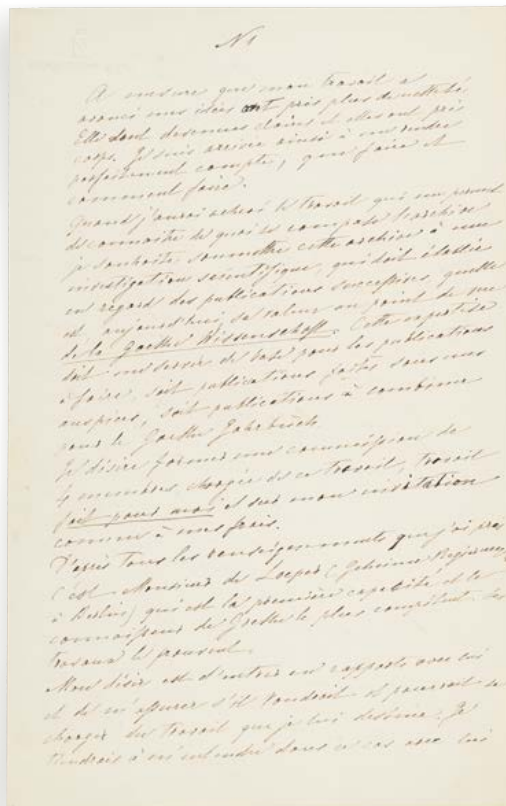 N 1
A mesure que mon travail a
avancé mes idées ont pris plus de netteté.
Elle sont devenues claires et elles ont pris
corps. Je suis arrivée ainsi à me rendre
parfaitement compte, que faire et
comment faire.
Quand j'aurai achevé le travail qui me permet
de connaitre de quoi se compose l'archive
je souhaite soumettre cette archive à une
investigation scientifique, qui doit établir
en regard des publications successives, quelle
est aujourd'hui sa valeur au point de vue
de la Goethe Wissenschaft. Cette expertise
doit me servir de base pour les publications
à faire, soit publications faites sous mes
auspices, soit publications à combiner
pour le Goethe Jahrbuch.
Je désire former une commission de
4 membres chargée de ce travail, travail
fait pour moi et sur mon invitation
comme à mes frais.
D'après tous les renseignements que j'ai pris
c'est Monsieur de Loeper (Geheimer Regierungs
à Berlin) qui est la première capacité et le
connaisseur de Goethe le plus compétent. Ses
travaux le prouvent.
Mon désir est d'entrer en rapports avec lui
et de m'assurer s'il voudrait et pourrait se
charger du travail que je lui destine. Je
tiendrais à m'entendre dans ce cas avec lui